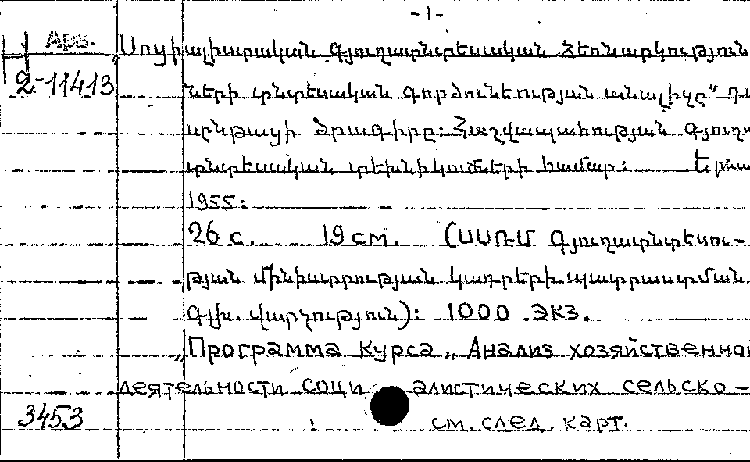 -1-
Арм.
2-11413
„Սոցիալիստական գյուղատնտեսական ձեռնարկություն
ների տնտեսական գործունեության անալիզը“ դա
սընթացի ծրագիրը: Հաշվապահության գյուղ
տնտեսական տեխնիկումների համար: Երևա
1955:
26 с. 19 см. (ՍՍՌՄ Գյուղատնտեսու-
թյան մինիստրության կադրերի պատրաստման
գլխ. վարչություն): 1000 экз.
„Программа курса „Анализ хозяйственной
деятельности соци алистических сельско-
3453
см. след. карт.